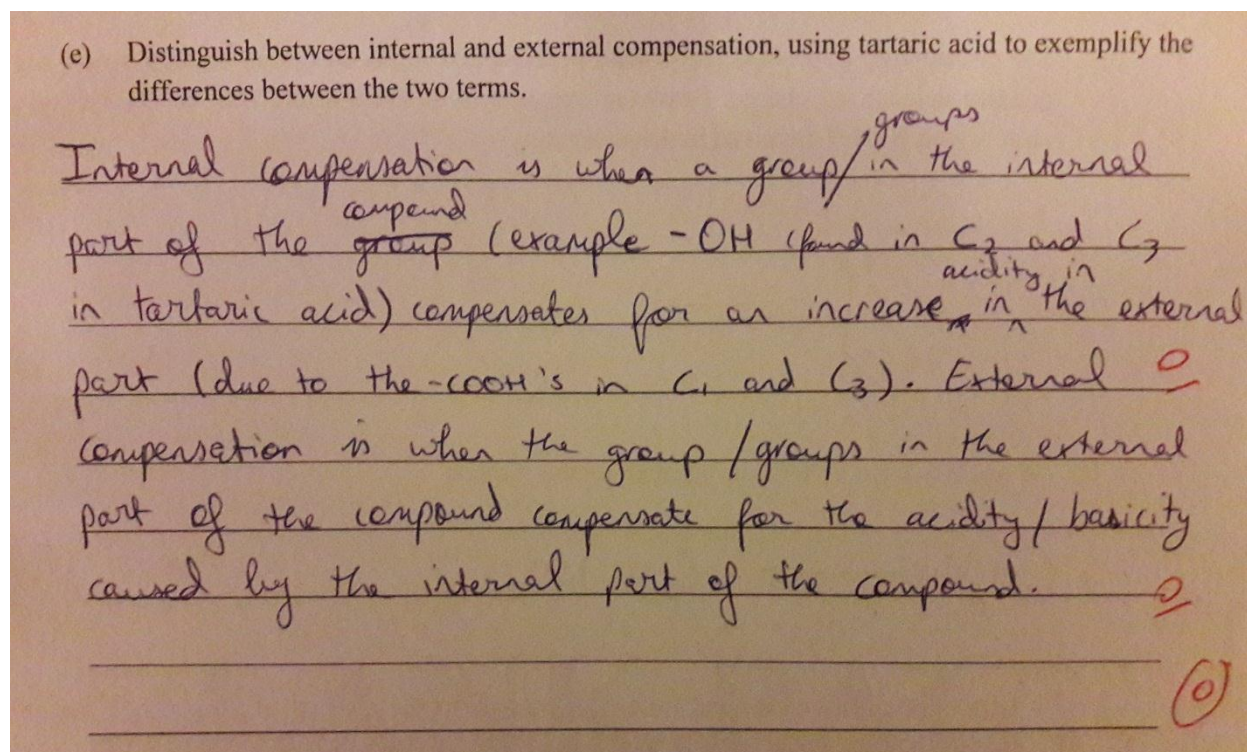 (e) Distinguish between internal and external compensation, using tartaric acid to exemplify the
differences between the two terms.
groups
Internal compensation is when a group/ in the internal
compound
part of the group (example -OH (found in C2 and C3
acidity in
in tartaric acid) compensates for an increase in the external
part (due to the -COOH's in C1 and C3). External 0
compensation is when the group /groups in the external
part of the compound compensate for the acidity / basicity
caused by the internal part of the compound. 0
0